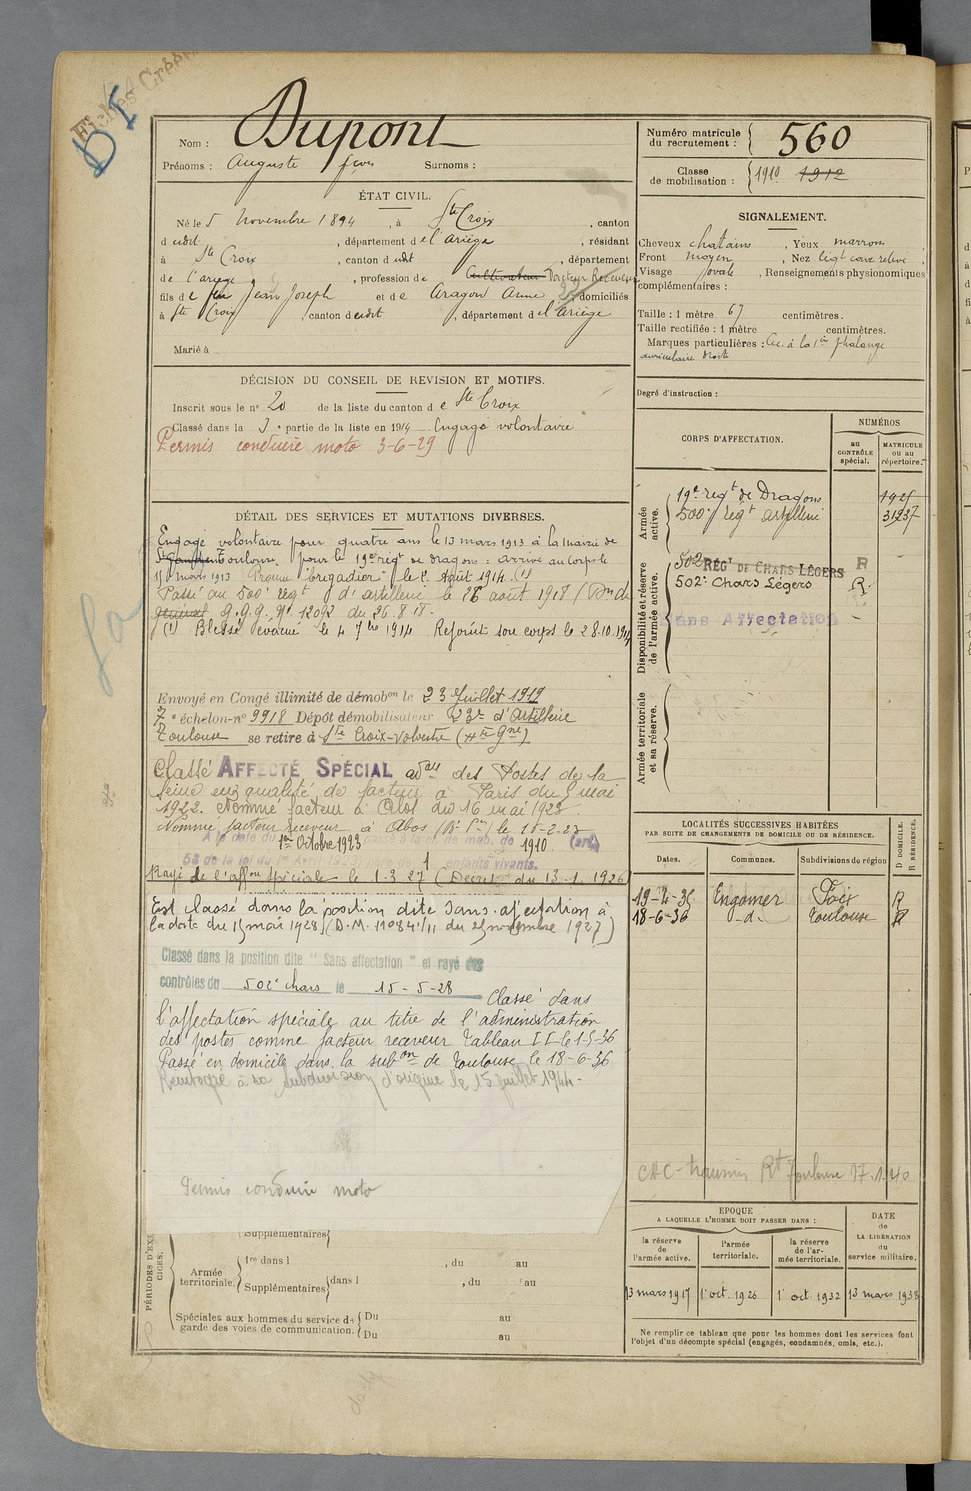 Fiches Créées
DI
Nom : Dupont
Prénoms : Auguste Jean Surnoms :
ÉTAT CIVIL.
Né le 5 Novembre 1894, à Ste Croix, canton
dudit, département de l'Ariège, résidant
à Ste Croix, canton dudit, département
de l'Ariège, profession de Cultivateur Facteur Receveur
fils de feu Jean Joseph et de Aragon Anne, domiciliés
à Ste Croix, canton dudit, département de l'Ariège
Marié à
DÉCISION DU CONSEIL DE REVISION ET MOTIFS.
Inscrit sous le n° 20 de la liste du canton de Ste Croix
Classé dans la 3e partie de la liste en 1914 Engagé volontaire
Permis conduire moto 3-6-29
DÉTAIL DES SERVICES ET MUTATIONS DIVERSES.
Engagé volontaire pour quatre ans le 13 mars 1913 à la Mairie de
St Gaudens Toulouse pour le 19e régt de dragons : arrivé au corps le
15 mars 1913 Promu brigadier le 1er Août 1914 (1)
Passé au 500e régt d'artillerie le 26 août 1918 (Don du
général G.Q.G. n° 12092 du 26.8.18.
(1) Blessé évacué le 4 7bre 1914 Rejoint son corps le 28.10.1914
Envoyé en Congé illimité de démobon le 23 Juillet 1919
7e échelon-n° 9918 Dépôt démobilisateur 23e d'Artillerie
Toulouse se retire à Ste Croix-Volvestre (Hte Gne)
Classé AFFECTÉ SPÉCIAL adon des Postes de la
Seine en qualité de facteur à Paris du 5 mai
1922. Nommé facteur à Alos du 16 mai 1923.
Nommé facteur receveur à Abos (Bs Pes) le 18-2-23
A la date du 1er Octobre 1923 passé à la cl. de mob. de 1910 (art.
58 de la loi du 1er Avril 1923) père de 1 enfants vivants.
Rayé de l'affon spéciale le 1.3.27 (Décret du 13.1.1926)
Est classé dans la position dite sans-affectation à
la date du 15 mai 1928 (D.M. 11084 1/11 du 25 novembre 1927)
Classé dans la position dite "Sans affectation" et rayé des
contrôles du 502e chars le 15-5-28
Classé dans
l'affectation spéciale au titre de l'administration
des postes comme facteur receveur Tableau II le 1-5-36
Passé en domicile dans la subon de Toulouse le 18-6-36
à sa subdivision d'origine le 15 juillet 1944-
Permis conduire moto
PÉRIODES D'EXERCICES.
Supplémentaires
Armée territoriale.
1re dans l , du au
Supplémentaires dans l , du au
Spéciales aux hommes du service de garde des voies de communication.
Du au
Du au
Numéro matricule du recrutement : 560
Classe de mobilisation : 1910 1912
SIGNALEMENT.
Cheveux chatains, Yeux marrons,
Front moyen, Nez légt cave relevé,
Visage ovale, Renseignements physionomiques
complémentaires :
Taille : 1 mètre 67 centimètres.
Taille rectifiée : 1 mètre centimètres.
Marques particulières : Cic. à la 1ère phalange
auriculaire droit
Degré d'instruction :
CORPS D'AFFECTATION.
NUMÉROS
au CONTRÔLE spécial.
MATRICULE ou au répertoire.
Armée active.
19e régt de Dragons
500e régt artillerie 31237
Disponibilité et réserve de l'armée active.
502 RÉGt DE CHARS LÉGERS R
502e Chars Légers R.
Sans Affectation
Armée territoriale et sa réserve.
LOCALITÉS SUCCESSIVES HABITÉES
PAR SUITE DE CHANGEMENTS DE DOMICILE OU DE RÉSIDENCE.
D DOMICILE. R RÉSIDENCE.
Dates. Communes. Subdivisions du région
19-4-36 Engomer Foix R
18-6-36 -d°- Toulouse D
Rt Toulouse 17.1.40
EPOQUE
A LAQUELLE L'HOMME DOIT PASSER DANS :
la réserve de l'armée active.
l'armée territoriale.
la réserve de l'armée territoriale.
DATE de LA LIBÉRATION du service militaire.
13 mars 1917 1er oct. 1926 1er oct 1932 13 mars 1938
Ne remplir ce tableau que pour les hommes dont les services font
l'objet d'un décompte spécial (engagés, condamnés, omis, etc.).